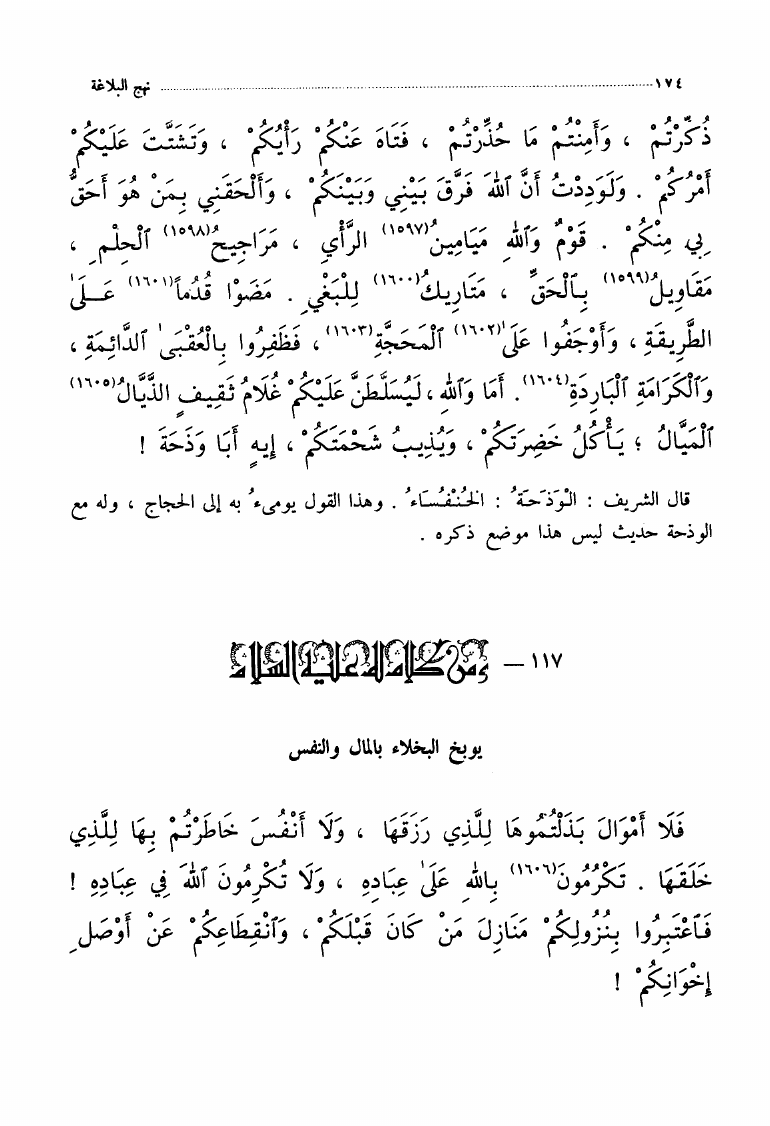 ١٧٤ ........ نهج البلاغة
ذُكِّرْتُمْ ، وَأَمِنْتُمْ مَا حُذِّرْتُمْ ، فَتَاهَ عَنْكُمْ رَأْيُكُمْ ، وَتَشَتَّتَ عَلَيْكُمْ
أَمْرُكُمْ . وَلَوَدِدْتُ أَنَّ ٱللهَ فَرَّقَ بَيْنِي وَبَيْنَكُمْ ، وَأَلْحَقَنِي بِمَنْ هُوَ أَحَقُّ
بِي مِنْكُمْ . قَوْمٌ وَٱللهِ مَيَامِينُ(١٥٩٧) الرَّأْيِ ، مَرَاجِيحُ(١٥٩٨) ٱلْحِلْمِ ،
مَقَاوِيلُ(١٥٩٩) بِٱلْحَقِّ ، مَتَارِيكُ(١٦٠٠) لِلْبَغْيِ . مَضَوْا قُدُماً(١٦٠١) عَلَىٰ
الطَّرِيقَةِ ، وَأَوْجَفُوا عَلَىٰ(١٦٠٢) ٱلْمَحَجَّةِ(١٦٠٣) ، فَظَفِرُوا بِٱلْعُقْبَىٰ ٱلدَّائِمَةِ ،
وَٱلْكَرَامَةِ ٱلْبَارِدَةِ(١٦٠٤). أَمَا وَٱللهِ ، لَيُسَلَّطَنَّ عَلَيْكُمْ غُلَامُ ثَقِيفٍ الذَّيَّالُ(١٦٠٥)
ٱلْمَيَّالُ ؛ يَأْكُلُ خَضِرَتَكُمْ ، وَيُذِيبُ شَحْمَتَكُمْ ، إِيهٍ أَبَا وَذَحَةَ !
قال الشريف : الْوَذَحَةُ : الْخُنْفُسَاءُ . وهذا القول يومىءُ به إلى الحجاج ، وله مع
الوذحة حديث ليس هذا موضع ذكره .
١١٧ – ومن كلام له عليه السلام
يوبخ البخلاء بالمال والنفس
فَلَا أَمْوَالَ بَذَلْتُمُوهَا لِلَّذِي رَزَقَهَا ، وَلَا أَنْفُسَ خَاطَرْتُمْ بِهَا لِلَّذِي
خَلَقَهَا . تَكْرُمُونَ(١٦٠٦) بِٱللهِ عَلَىٰ عِبَادِهِ ، وَلَا تُكْرِمُونَ ٱللهَ فِي عِبَادِهِ !
فَٱعْتَبِرُوا بِنُزُولِكُمْ مَنَازِلَ مَنْ كَانَ قَبْلَكُمْ ، وَٱنْقِطَاعِكُمْ عَنْ أَوْصَلِ
إِخْوَانِكُمْ !